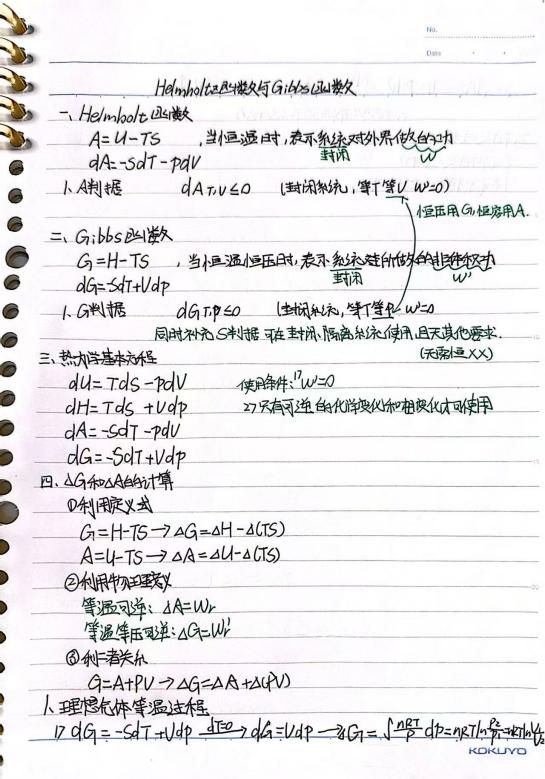 No.
Date
Helmholtz函数与Gibbs函数
一、Helmholt函数
A=U-TS ,当恒温时,表示系统对外界做的功
封闭 W
dA=-SdT-pdV
1、A判据 dA T,V≤0 (封闭系统,等T等V W'=0)
恒压用G,恒容用A.
二、Gibbs函数
G=H-TS ,当恒温恒压时,表示系统对所做的非体积功
封闭 W'
dG=-SdT+Vdp
1、G判据 dG T,p≤0 (封闭系统,等T等p W'=0
同时补充S判据可在封闭、隔离系统使用,且无其他要求.
(无需恒XX)
三、热力学基本方程
dU=Tds-pdV 使用条件:17 W'=0
dH=Tds+Vdp 27只有可逆的化学变化和相变化才可使用
dA=-SdT-pdV
dG=-SdT+Vdp
四、△G和△A的计算
①利用定义式
G=H-TS→△G=△H-△(TS)
A=U-TS→△A=△U-△(TS)
②利用物理意义
等温可逆:△A=Wr
等温等压可逆:△G=Wr'
③利二者关系
G=A+PV→△G=△A+△(PV)
1、理想气体等温过程
17 dG=-SdT+Vdp dT=0→ dG=Vdp→△G=∫nRT/P dp=nRTln P2/P1=nRTln V1/V2
KOKUYO